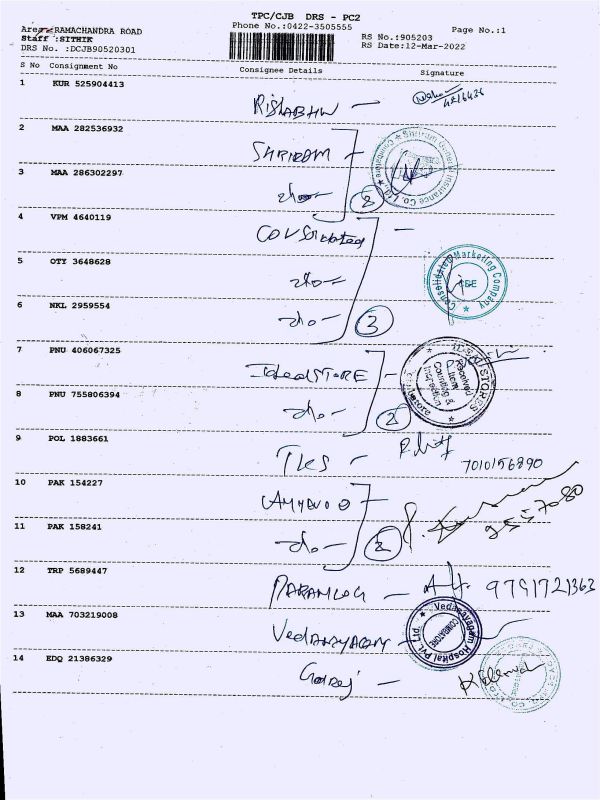 TPC/CJB DRS - PC2
Area :RAMACHANDRA ROAD Phone No.:0422-3505555 Page No.:1
Staff :SITHIK RS No.:905203
DRS No. :DCJB90520301 RS Date:12-Mar-2022
S No Consignment No Consignee Details Signature
1 KUR 525904413
RISHABHW -
2 MAA 282536932
SHRIRAM - Shriram General Insurance Co. Ltd., Coimbatore
3 MAA 286302297
-do- 2
4 VPM 4640119
-
5 OTY 3648628
-do- Consolidated Marketing Company CBE
6 NKL 2959554
-do- 3
7 PNU 406067325
Ideal STORE - IDEAL STORES Received Item Counting & Inspection
8 PNU 755806394
-do- 2
9 POL 1883661
TKS - 7010156890
10 PAK 154227
11 PAK 158241
-do- 2
12 TRP 5689447
- 9791721363
13 MAA 703219008
Vedanayagam - Vedanayagam Hospital Pvt. Ltd. COIMBATORE
14 EDQ 21386329
Godrej -